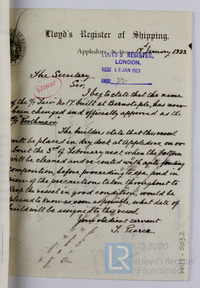 Lloyd's Register of Shipping.
Appledore, N. D. 18th January 1923
LLOYD'S REGISTER,
LONDON.
RECD 19 JAN 1923
ANSD
The Secretary
Sir,
I beg to state that the name
of the S/S built at Barnstaple, has now
been changed and officially approved as the
The builders state that this vessel
will be placed in dry dock at Appledore on or
about the 5th of February next when the bottom
will be cleaned and re-coated with anti-fouling
composition, before proceeding to sea, and in
view of the precaution taken throughout to
keep the vessel in good condition, would be
pleased to know as soon as possible, what date of
build will be assigned to this vessel.
Your obedient servant
J. Pearce.
© 2020
Lloyd's Register
Foundation